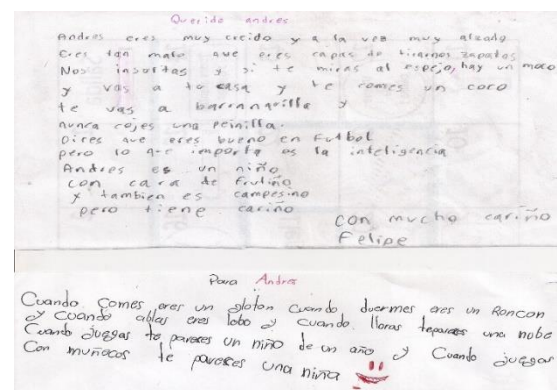 Querido andres
Andres eres muy creido y a la vez muy alzado
Eres tan malo que eres capas de tirarnos zapatos
Nos insultas y si te miras al espejo, hay un moco
y vas a tu casa y te comes un coco
te vas a barranquilla y
nunca cojes una peinilla.
Dices que eres bueno en Futbol
pero lo que importa es la inteligencia
Andres es un niño
con cara de frutiño
y tambien es campesino
pero tiene cariño
con mucho cariño
Felipe
Para Andres
Cuando comes eres un gloton cuando duermes eres un Roncon
y cuando ablas eres lobo y cuando lloras tepareces una nube
Cuando juegas te pareces un niño de un año y Cuando juegas
Con muñecos te pareces una niña